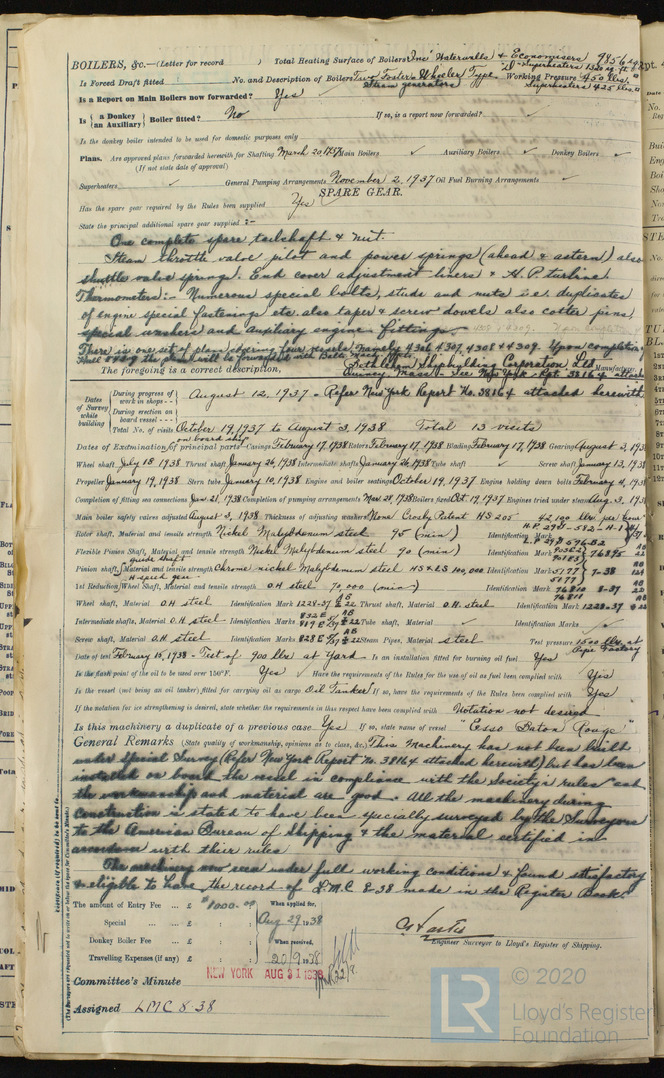 BOILERS, &c.—(Letter for record ) Total Heating Surface of Boilers Inc' Waterwalls & Economisers 9856 sq. ft.
"D" Superheaters 1320 sq. ft.
Is Forced Draft fitted No. and Description of Boilers Two Foster Wheeler Type Working Pressure 450 lbs.
Steam generators Superheaters 425 lbs.
Is a Report on Main Boilers now forwarded? Yes
Is { a Donkey / an Auxiliary } Boiler fitted? No If so, is a report now forwarded?
Is the donkey boiler intended to be used for domestic purposes only
Plans. Are approved plans forwarded herewith for Shafting March 20 1937 Main Boilers ✓ Auxiliary Boilers ✓ Donkey Boilers ✓
(If not state date of approval)
Superheaters ✓ General Pumping Arrangements November 2, 1937 Oil Fuel Burning Arrangements ✓
SPARE GEAR.
Has the spare gear required by the Rules been supplied Yes
State the principal additional spare gear supplied :—
One complete spare tailshaft & nut.
Steam throttle valve pilot and power springs (ahead & astern) also
shuttle valve springs. End cover adjustment liners & H.P. turbine
Thermometers:- Numerous special bolts, studs and nuts i.e. duplicates
of engine special fastenings etc. also taper & screw dowels also cotter pins,
special washers and auxiliary engine fittings.
There is one set of plans covering four vessels, namely 4306, 4307, 4308 & 4309. Upon completion
The foregoing is a correct description, Bethlehem Shipbuilding Corporation, Ltd Manufacturer.
Quincy, Mass - See New York Rpt. 38164 attached
Dates of Survey while building
During progress of work in shops - - August 12, 1937 - Refer New York Report No. 38164 attached herewith
During erection on board vessel - - -
Total No. of visits October 19, 1937 to August 3, 1938 Total 13 visits
on board ship
Dates of Examination of principal parts—Casings February 17, 1938 Rotors February 17, 1938 Blading February 17, 1938 Gearing August 3, 1938
Wheel shaft July 15 1938 Thrust shaft January 26, 1938 Intermediate shafts January 26, 1938 Tube shaft ✓ Screw shaft January 13, 1938
Propeller January 19, 1938 Stern tube January 10, 1938 Engine and boiler seatings October 19, 1937 Engine holding down bolts February 4, 1938
Completion of fitting sea connections Jan 21, 1938 Completion of pumping arrangements Boilers fixed Oct 19, 1937 Engines tried under steam Aug. 3, 1938
Main boiler safety valves adjusted August 3, 1938 Thickness of adjusting washers None Crosby Patent HS 205 42,100 lbs. per hour
Rotor shaft, Material and tensile strength Nickel Molybdenum steel 95 (min) Identification Mark
Flexible Pinion Shaft, Material and tensile strength Nickel Molybdenum steel 90 (min) Identification Mark 76895 AB
Pinion shaft, Material and tensile strength Chrome nickel Molybdenum steel HS & LS 100,000 Identification Mark 5177 7-38
1st Reduction Wheel Shaft, Material and tensile strength O.H steel 70,000 (min) Identification Mark 76810 8-37
Wheel shaft, Material O.H steel Identification Mark 1228-37 AB 22 Thrust shaft, Material O.H. steel Identification Mark 1228-37
Intermediate shafts, Material O.H steel Identification Marks 832E 819E AB 22 Tube shaft, Material ✓ Identification Marks ✓
Screw shaft, Material O.H steel Identification Marks 828E AB 22 Steam Pipes, Material steel Test pressure 1500 lbs. at Pipe Factory
Date of test February 15, 1938 - Test of 900 lbs at Yard Is an installation fitted for burning oil fuel Yes
Is the flash point of the oil to be used over 150°F. Yes Have the requirements of the Rules for the use of oil as fuel been complied with Yes
Is the vessel (not being an oil tanker) fitted for carrying oil as cargo Oil Tanker If so, have the requirements of the Rules been complied with Yes
If the notation for ice strengthening is desired, state whether the requirements in this respect have been complied with Notation not desired
Is this machinery a duplicate of a previous case Yes If so, state name of vessel "Esso Baton Rouge"
General Remarks (State quality of workmanship, opinions as to class, &c.) This Machinery has not been built
under Special Survey (Refer New York Report No. 38164 attached herewith) but has been
installed on board the vessel in compliance with the Society's rules and
the workmanship and material are good. All the machinery during
construction is stated to have been specially surveyed by the Surveyors
to the American Bureau of Shipping & the material certified in
accordance with their rules
The machinery now seen under full working conditions & found satisfactory
& eligible to have the record of L.M.C 8-38 made in the Register Book.
The amount of Entry Fee ... £ $1000.00 When applied for,
Special ... ... £ Aug 29 1938
Donkey Boiler Fee ... £ When received,
Travelling Expenses (if any) £ 20/9/1938
Engineer Surveyor to Lloyd's Register of Shipping.
Committee's Minute NEW YORK AUG 31 1938
Assigned LMC 8.38
© 2020
LR Lloyd's Register
Foundation